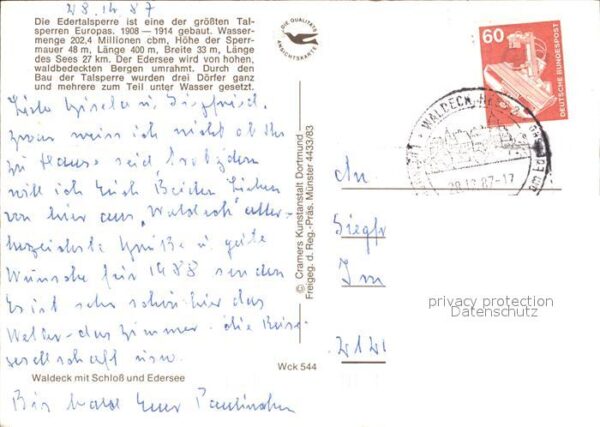 28.12.87
Die Edertalsperre ist eine der größten Tal-
sperren Europas. 1908 — 1914 gebaut. Wasser-
menge 202,4 Millionen cbm, Höhe der Sperr-
mauer 48 m, Länge 400 m, Breite 33 m, Länge
des Sees 27 km. Der Edersee wird von hohen,
waldbedeckten Bergen umrahmt. Durch den
Bau der Talsperre wurden drei Dörfer ganz
und mehrere zum Teil unter Wasser gesetzt.
Liebe Gisela u. Siegfried,
zwar weiss ich nicht ob Ihr
zu Hause seid, trotzdem
will ich Euch Beiden Lieben
von hier aus "Waldeck" aller-
herzlichste Grüße u. gute
Wünsche für 1988 senden
Es ist sehr schön hier das
Wetter - das Zimmer - die Reise-
gesellschaft usw.
Waldeck mit Schloß und Edersee
Bis bald Eure
DIE QUALITÄTS
ANSICHTSKARTE
© Cramers Kunstanstalt Dortmund
Freigeg. d. Reg.-Präs. Münster 4433/83
Wck 544
60
DEUTSCHE BUNDESPOST
WALDECK
28.12.87-17
An
Siegfr
Im
privacy protection
Datenschutz